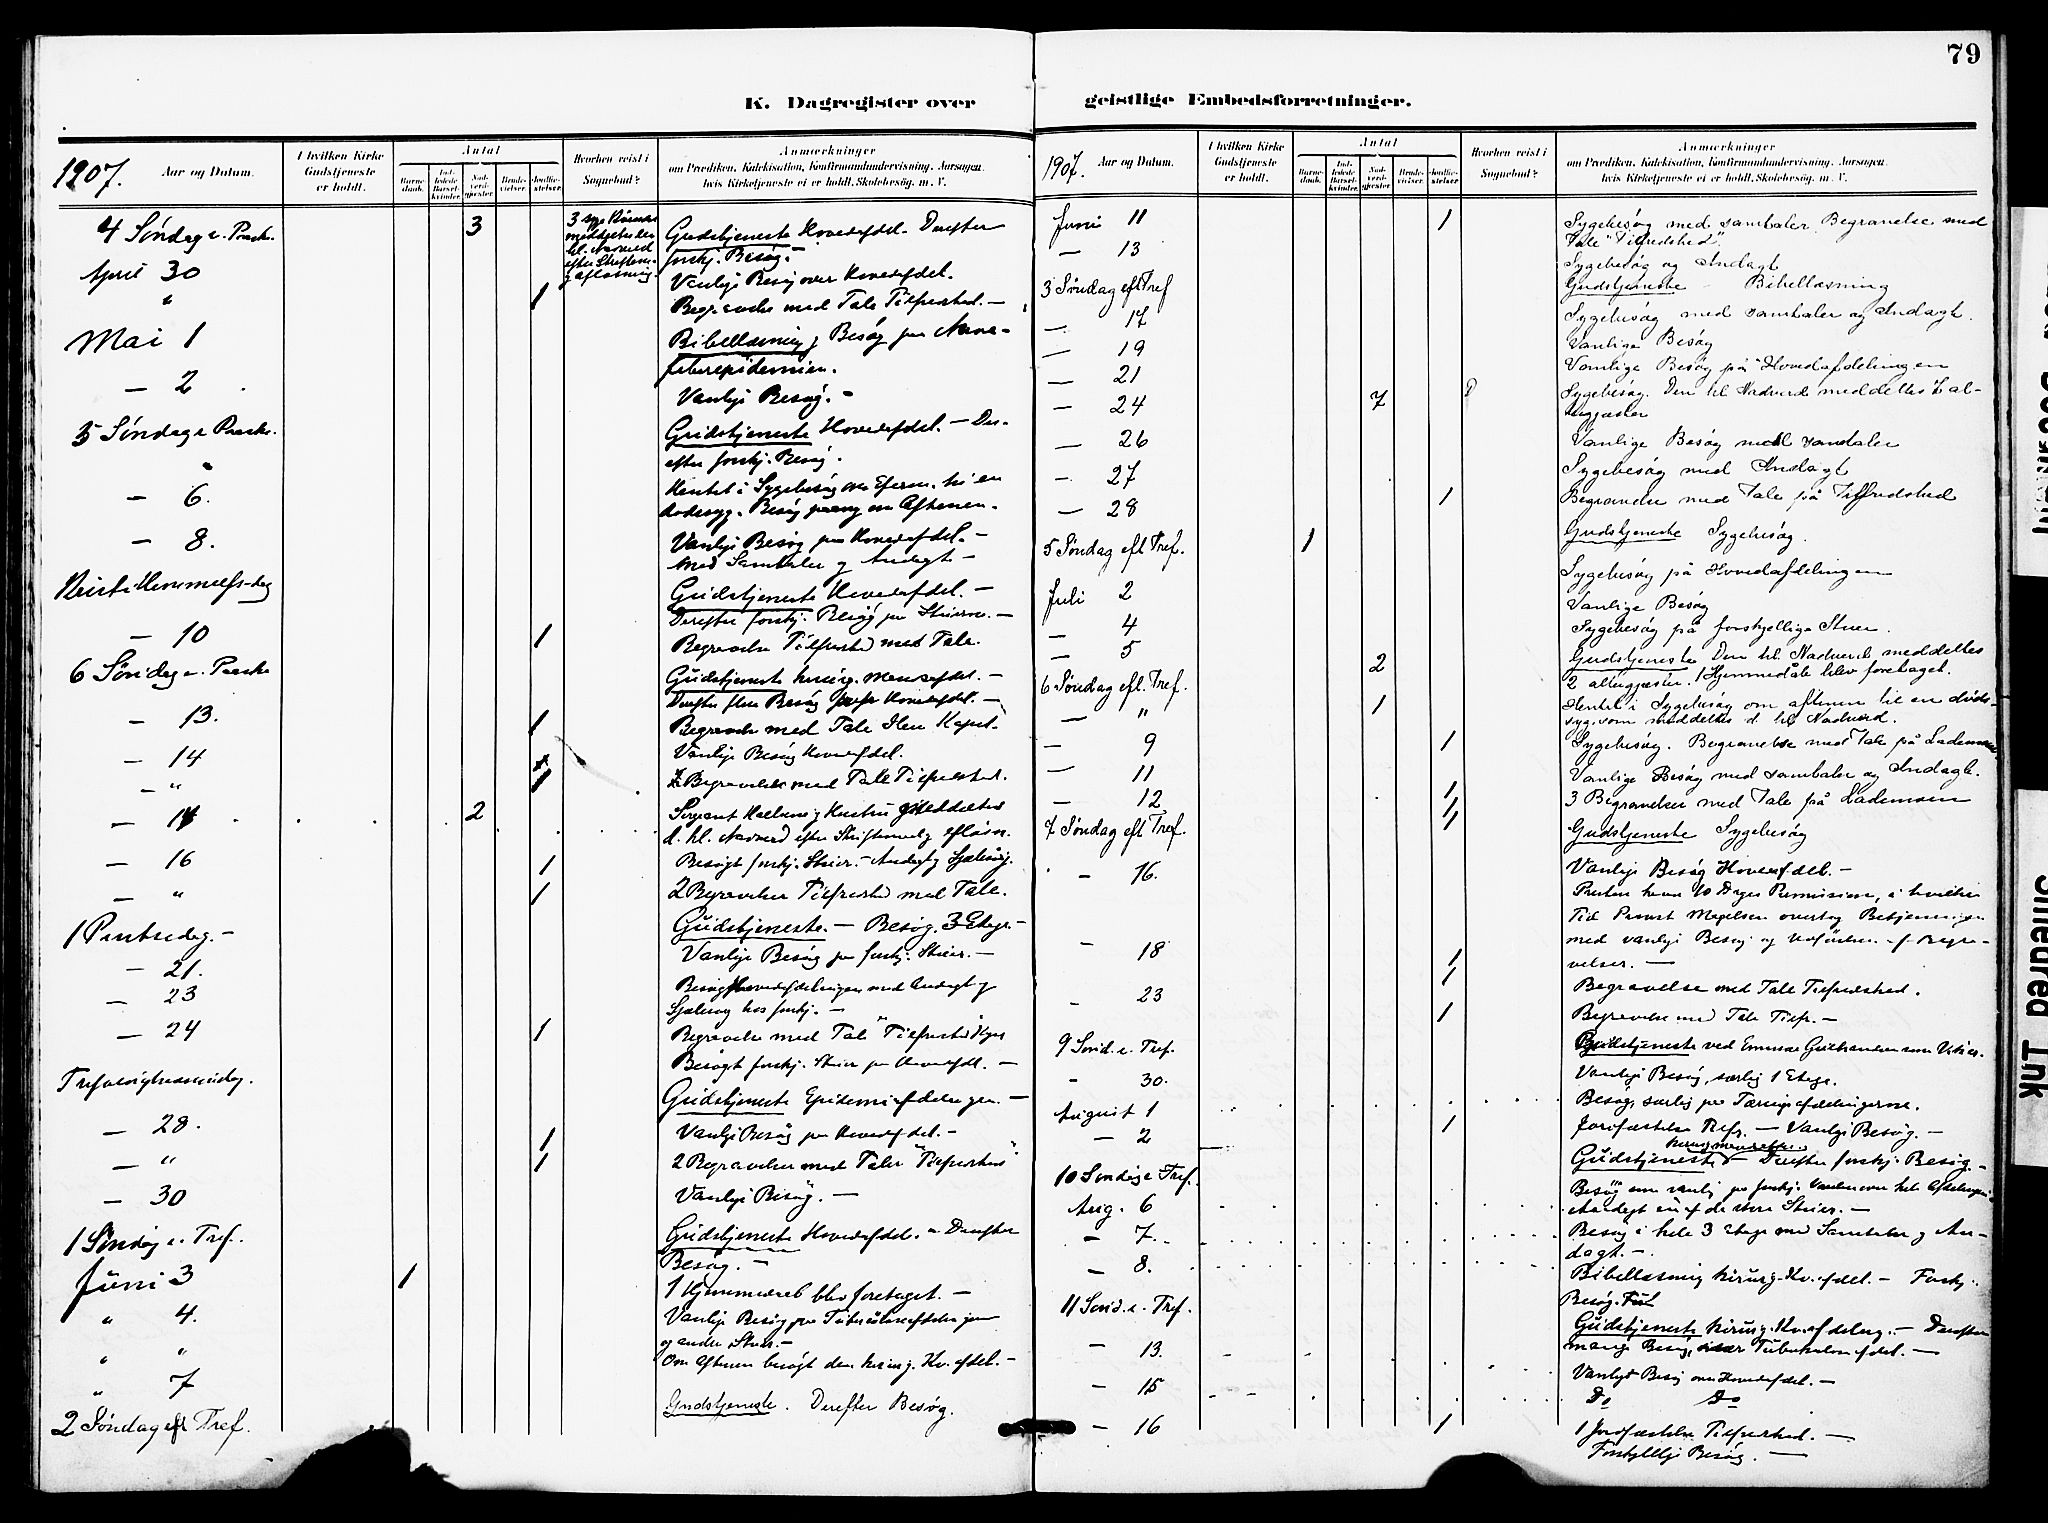 79
K. Dagregister over geistlige Embedsforretninger.
1907.
Aar og Datum.
I hvilken Kirke Gudstjeneste er holdt.
Antal
Barnedaab.
Indledede Barselkvinder.
Nadverdgjester.
Brudevielser.
Jordfæstelser.
Hvorhen reist i Sognebud?
Anmærkninger
om Prædiken, Katekisation, Konfirmandundervisning, Aarsagen,
hvis Kirketjeneste ei er holdt, Skolebesøg, m. V.
4 Søndag e. Paaske. 3 Gudstjeneste Hovedafdel. Derefter
forskj. Besøg. —
April 30 Vanlige Besøg over Hovedafdel.
" 1 Begravelse med Tale Tilfredshed. —
Mai 1 Bibellæsning, Besøg paa Nerve-
feberepidemien.
— 2 Vanlige Besøg. —
5 Søndag e Paaske. Gudstjeneste Hovedafdel. — Der-
efter forskj. Besøg.
"
— 6. Hentet i Sygebesøg
— 8. Vanlige Besøg paa Hovedafdel. —
med Samtaler og Andagt —
Kristi Himmelfartsdag Gudstjeneste Hovedafdel. —
Derefter forskj. Besøg paa Stuerne. —
— 10 1 Begravelse Tilfredshed med Tale.
6 Søndag e. Paaske Gudstjeneste kirurg. mandsafdel. —
Derefter flere Besøg Hovedafdel. —
— 13. 1 Begravelse med Tale
— 14 Vanlige Besøg Hovedafdel.
— " 1 2 Begravelser med Tale Tilfredshed.
— 14 2 Sergeant og Hustru meddeltes
d. hl. Nadverd efter Skriftemaal og Afløsn.
— 16 1 Besøgt forskj. Stuer. — Andagt og Sjælesørg.
— " 1 2 Begravelser Tilfredshed med Tale.
1 Pintsedag. — Gudstjeneste. — Besøg. 3 Etage. —
— 21. Vanlige Besøg paa forskj. Stuer. —
— 23 Besøg Hovedafdelingen med Andagt og
Sjælesorg hos forskj. —
— 24 1 Begravelse med Tale "Tilfredshed"
Besøgt forskj. Stuer paa Hovedafdel. —
Trefoldighedssøndag. Gudstjeneste Epidemiafdelingen —
— 28. 1 Vanlige Besøg paa Hovedafdel. —
— " 1 2 Begravelser med Taler "Tilfredshed"
— 30 Vanlige Besøg. —
1 Søndag e. Tref. Gudstjeneste Hovedafdel. — Derefter
Besøg. —
Juni 3 1 1 Hjemmedaab blev foretaget. —
" 4. Vanlige Besøg paa Tuberkuloseafdelingen
og andre Stuer. —
" " Om Aftenen besøgt den kirurg. Kv. afdel. —
" 7
2 Søndag eft Tref. Gudstjeneste. Derefter Besøg.
1907.
Aar og Datum.
I hvilken Kirke Gudstjeneste er holdt.
Antal
Barnedaab.
Indledede Barselkvinder.
Nadverdgjester.
Brudevielser.
Jordfæstelser.
Hvorhen reist i Sognebud?
Anmærkninger
om Prædiken, Katekisation, Konfirmandundervisning, Aarsagen,
hvis Kirketjeneste ei er holdt, Skolebesøg, m. V.
Juni 11 1 Sygebesøg med samtaler. Begravelse med
Tale "Tilfredshed".
— 13 Sygebesøg og Andagt
3 Søndag eft Tref Gudstjeneste — Bibellæsning
— 17 Sygebesøg med samtaler og Andagt.
— 19 Vanlige Besøg
— 21 Vanlige Besøg på Hovedafdelingen
— 24 7 Sygebesøg. Den hl. Nadverd meddeltes 7 al-
tergjæster
— 26 Vanlige Besøg med samtaler
— 27 Sygebesøg med Andagt
— 28 1 Begravelse med Tale på Tilfredshed
5 Søndag eft Tref. 1 Gudstjeneste Sygebesøg.
Juli 2 Sygebesøg på Hovedafdelingen
— 4 Vanlige Besøg
— 5 Sygebesøg på forskjellige Stuer.
6 Søndag eft. Tref. 2 Gudstjeneste. Den hl. Nadverd meddeltes
2 altergjæster. 1 Hjemmedåb blev foretaget.
— " 1 Hentet i Sygebesøg om aftenen til en døds-
syg, som meddeltes d. hl. Nadverd.
— 9 1 Sygebesøg. Begravelse med Tale på Lademoen
— 11 Vanlige Besøg med samtaler og Andagt.
— 12 1 1 1 3 Begravelser med Tale på Lademoen
7 Søndag eft Tref. Gudstjeneste Sygebesøg
— 16. Vanlige Besøg Hovedafdel. —
Presten havde 10 Dages Permission, i hvilken
Tid overtog Betjeningen
med vanlige Besøg og Udførelsen af Begra-
velser. —
— 18 1 1 Begravelse med Tale Tilfredshed.
— 23 1 Begravelse med Tale Tilfr. —
9 Sønd. e. Tref. Gudstjeneste ved
— 30. Vanlige Besøg, særlig 1 Etage.
August 1 Besøg, særlig paa Tæringsafdelingerne.
— 2 1 Jordfæstelse Tilfr. — Vanlige Besøg. —
10 Søndag e Tref. Gudstjeneste — Derefter forskj. Besøg. —
Aug. 6 Besøg som vanlig paa forskj.
Andagt en af de store Stuer. —
— 7. Besøg i hele 3 Etage med Samtaler og An-
dagt. —
— 8. Bibellæsning kirurg. Kv. afdel. — Forskj.
Besøg.
11 Sønd. e. Tref. Gudstjeneste kirurg. Kv. afdeling. — Derefter
mange Besøg, især Tuberkuloseafdel. —
— 13. Vanlige Besøg over Hovedafdel. —
— 15 Do Do
— 16 1 1 Jordfæstelse Tilfredshed. —
Forskjellige Besøg. —